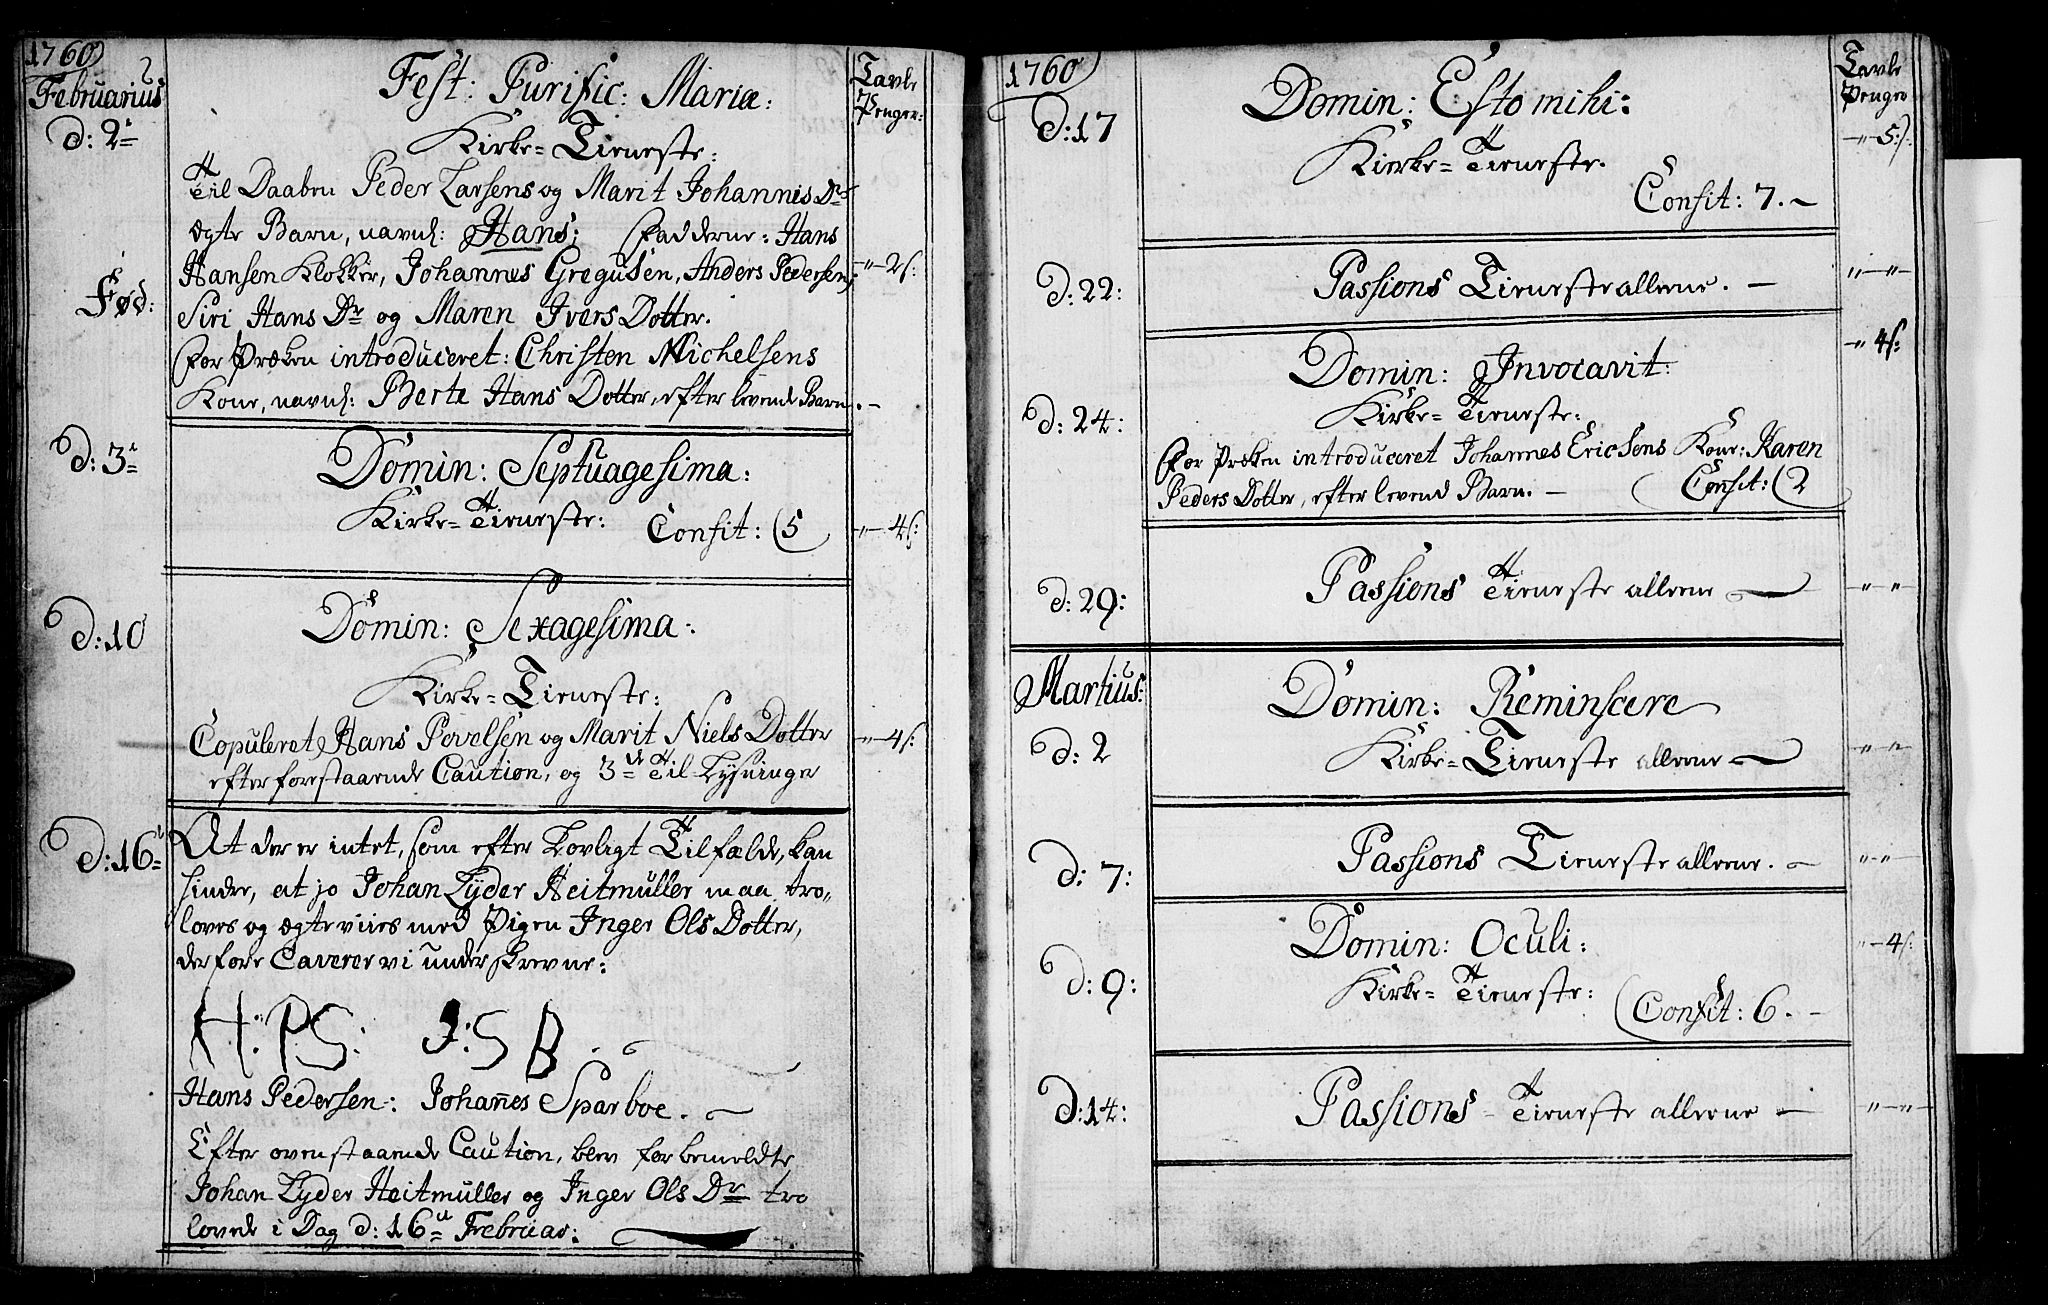 1760
Februarius
Fest: Purific: Mariæ:
Tavle
Penger:
d: 2
Kirke-Tieneste:
Til Daaben Peder Larsens og Marit Johannis Dr
ægte Barn, navnl: Hans; Fadderne: Hans
Hansen Klokker, Johannes Gregusen, Anders Pedersen,
"-2s:
Fød:
Siri Hans Dr og Maren Ivers Dotter.
før Præken introduceret: Christen Michelsens
Kone, navnl: Berte Hans Dotter, efter levende Barn.-
d: 3
Domin: Septuagesima:
Kirke-Tieneste: Confit: (5
"-4s:
d: 10
Domin: Sexagesima:
Kirke-Tieneste:
Copuleret Hans Povelsen og Marit Niels Dotter
"-4s:
efter forestaaende Caution, og 3de Til Lysninger
d: 16
At der er intet, som efter Lovligt Tilfælde, kan
hindre, at jo Johan Lyder Heitmuller maa tro-
loves og ægteviies med Pigen Inger Ols Dotter,
derfore Caverer vi underskrevne:
H:PS: J:S B
Hans Pedersen: Johannes Sparboe.
Efter ovenstaaende Caution, blev forbemeldte
Johan Lyder Heitmuller og Inger Ols Dr tro
lovede i Dag d: 16 Februar:
1760
Tavle
Penger
d: 17
Domin: Esto mihi:
"-5:
Kierke-Tieneste.
Confit: 7.-
d: 22:
Passions Tieneste allene. -
"-"-
d: 24:
Domin: Invocavit:
"4s:
Kirke-Tieneste:
før Præken introduceret Johannes Ericsens Kone: Karen
Peders Dotter, efter levend Barn. - Confit: (2
d: 29:
Passions Tieneste allene
"-"-
Martius:
d: 2
Domin: Reminscere
Kirke-Tieneste allene
"-"-
d: 7:
Passions Tieneste allene. -
"-"-
d: 9:
Domin: Oculi:
"-4s:
Kirke-Tieneste: (Confit: 6. -
d: 14:
Passions-Tieneste allene -
"-"-